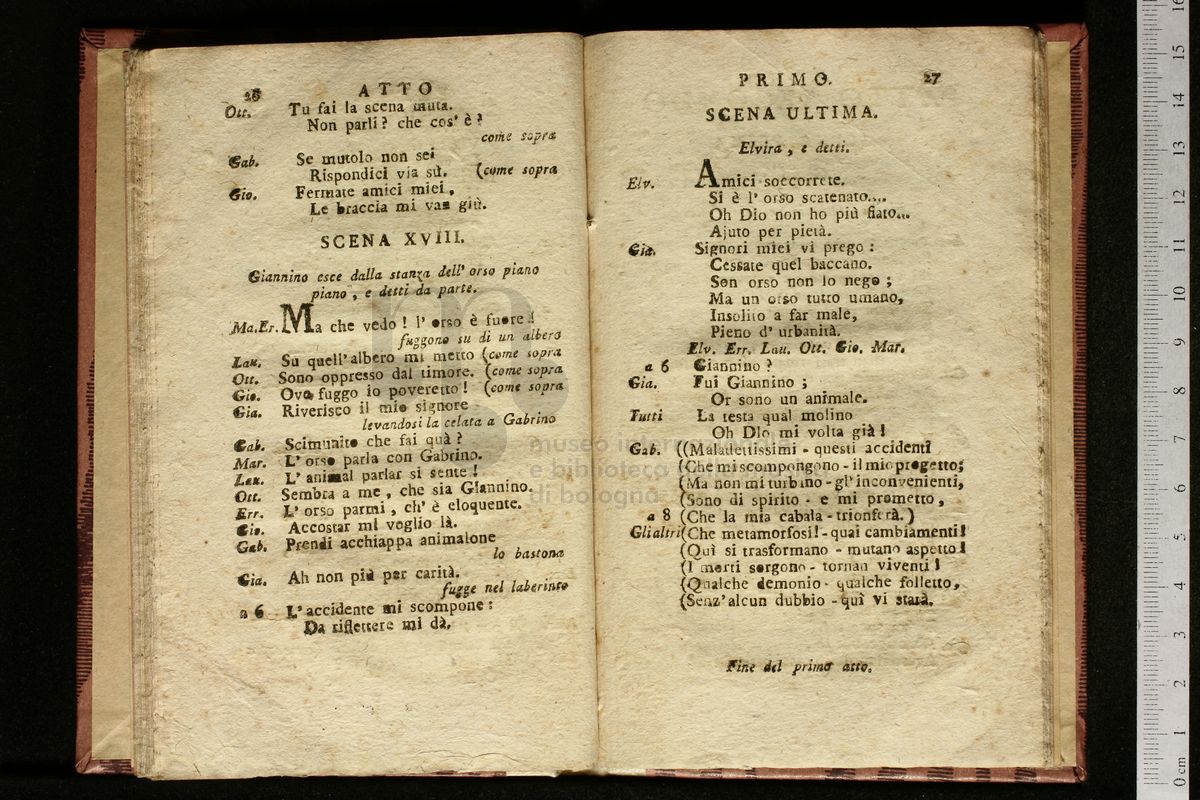 26
ATTO
Ott. Tu fai la scena muta.
Non parli? che cos' è?
come sopra
Gab. Se mutolo non sei
Rispondici via sù. (come sopra
Gio. Fermate amici miei,
Le braccia mi van giù.
SCENA XVIII.
Giannino esce dalla stanza dell' orso piano
piano, e detti da parte.
Ma.Er. Ma che vedo! l' orso è fuore!
fuggono su di un albero
Lau. Su quell' albero mi metto (come sopra
Ott. Sono oppresso dal timore. (come sopra
Gio. Ove fuggo io poveretto! (come sopra
Gia. Riverisco il mio signore
levandosi la celata a Gabrino
Gab. Scimunito che fai quà?
Mar. L' orso parla con Gabrino.
Lau. L' animal parlar si sente!
Ott. Sembra a me, che sia Giannino.
Err. L' orso parmi, ch' è eloquente.
Gio. Accostar mi voglio là.
Gab. Prendi acchiappa animalone
lo bastona
Gia. Ah non più per carità.
fugge nel laberinto
a 6 L' accidente mi scompone:
Da riflettere mi dà.
PRIMO.
27
SCENA ULTIMA.
Elvira, e detti.
Elv. Amici soccorrete.
Si è l' orso scatenato....
Oh Dio non ho più fiato...
Ajuto per pietà.
Gia. Signori miei vi prego:
Cessate quel baccano.
Son orso non lo nego;
Ma un orso tutto umano,
Insolito a far male,
Pieno d' urbanità.
Elv. Err. Lau. Ott. Gio. Mar.
a 6 Giannino?
Gia. Fui Giannino;
Or sono un animale.
Tutti La testa qual molino
Oh Dio mi volta già!
Gab. ((Maladettissimi - questi accidenti
(Che mi scompongono - il mio progetto;
(Ma non mi turbino - gl' inconvenienti,
(Sono di spirito - e mi prometto,
a 8 (Che la mia cabala - trionferà.)
Gli altri (Che metamorfosi! - quai cambiamenti!
(Quì si trasformano - mutano aspetto!
(I morti sorgono - tornan viventi!
(Qualche demonio - qualche folletto,
(Senz' alcun dubbio - quì vi starà.
Fine del primo atto.
museo internazionale
e biblioteca
di bologna
0 cm 1 2 3 4 5 6 7 8 9 10 11 12 13 14 15 16